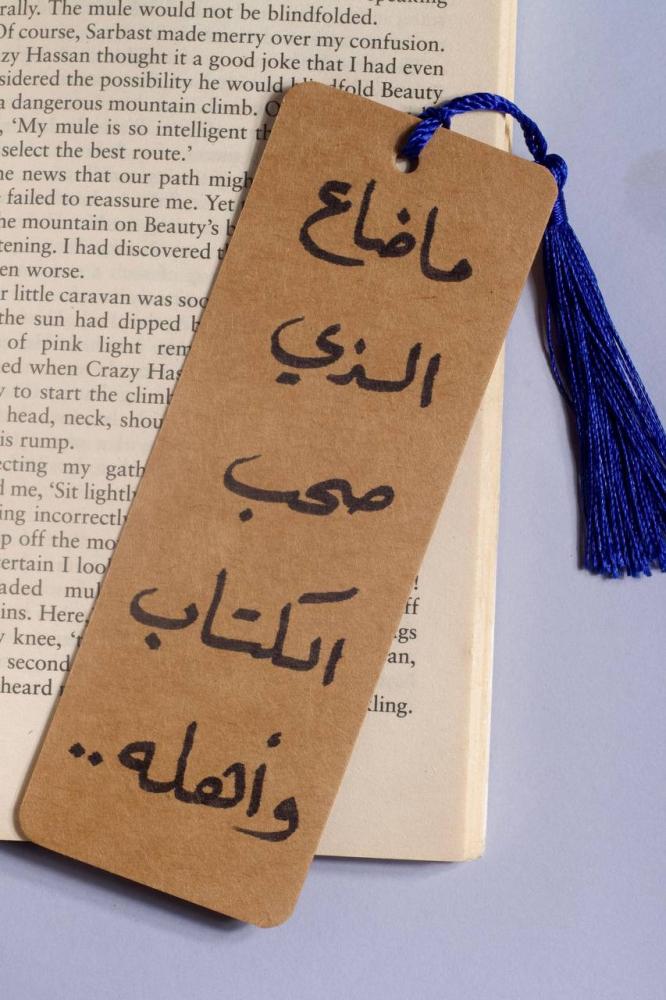 rally. The mule would not be blindfolded.
Of course, Sarbast made merry over my confusion.
zy Hassan thought it a good joke that I had even
sidered the possibility he would blindfold Beauty
a dangerous mountain climb.
, ‘My mule is so intelligent
select the best route.’
ne news that our path
failed to reassure me. Yet
he mountain on Beauty’s
tening. I had discovered
en worse.
r little caravan was
the sun had dipped
of pink light
ed when Crazy
y to start the climb
head, neck,
is rump.
ecting my
d me, ‘Sit
ing incorrectly
p off the
ertain I
aded
ins. Here,
y knee,
second
heard
!
ff
gs
an,
kling.
ماضاع
الذي
صحب
الكتاب
وأهله..